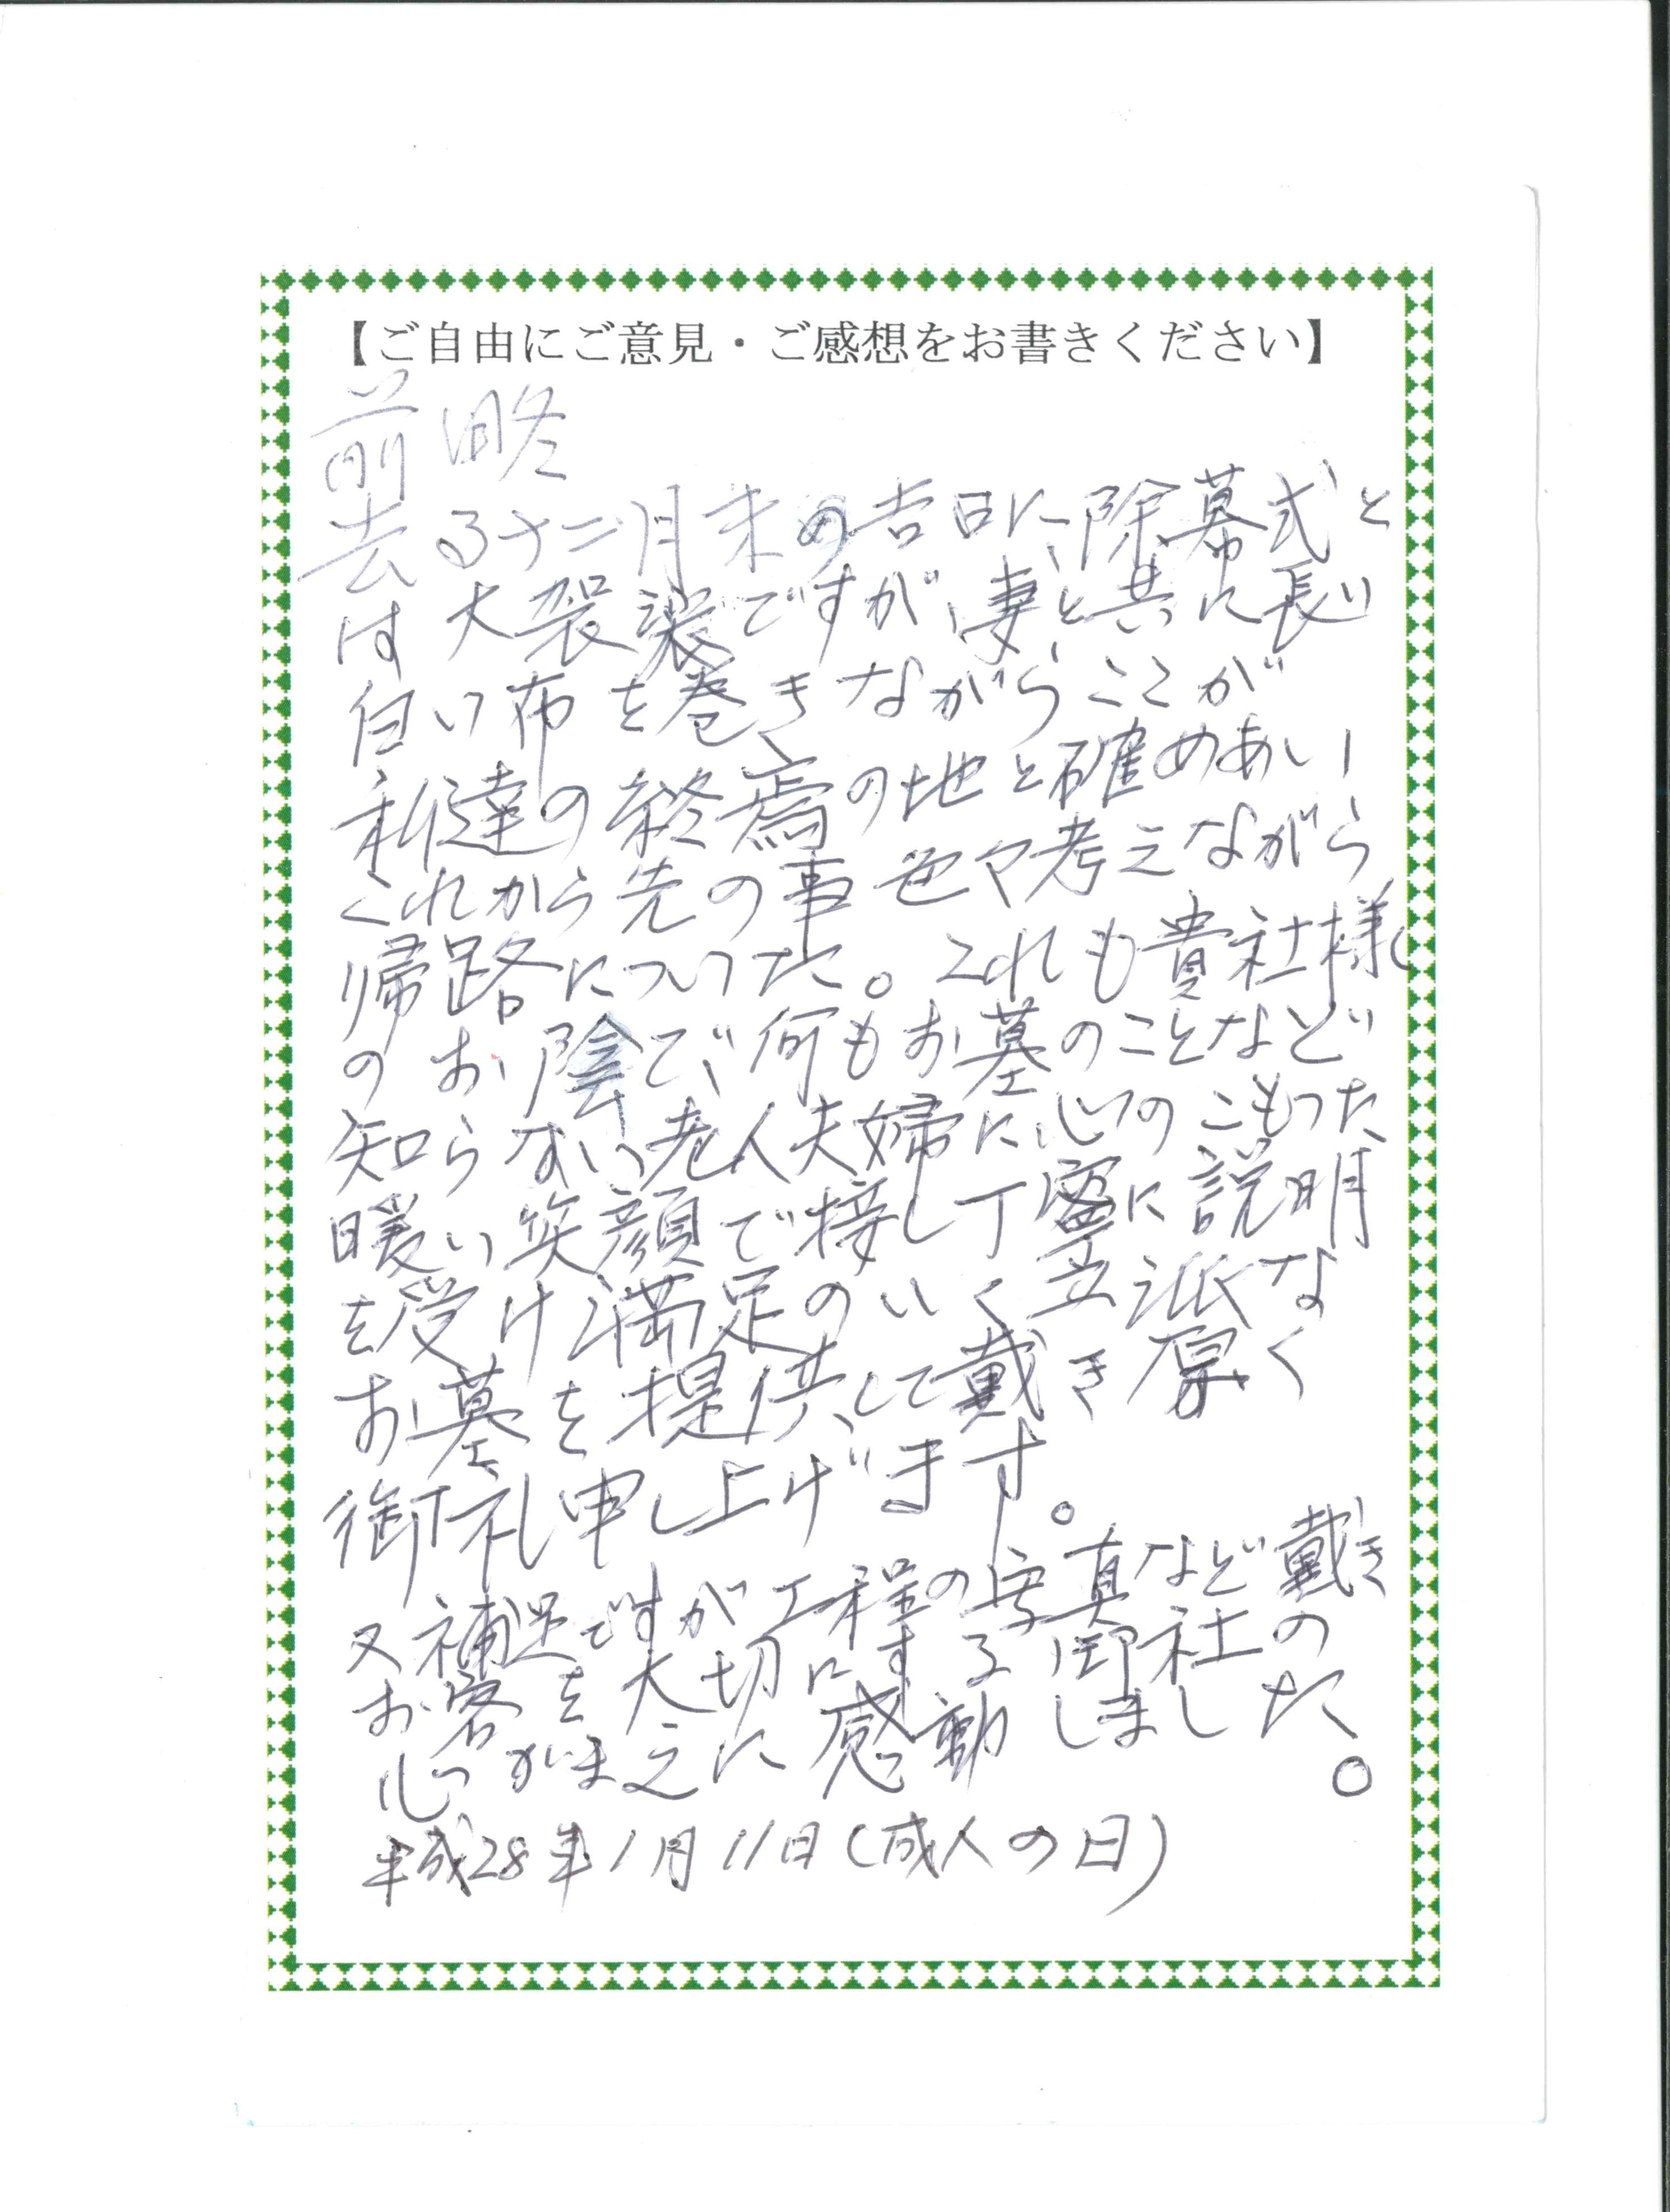 【ご自由にご意見・ご感想をお書きください】
前略
去る十二月末の吉日に、除幕式と
は大袈裟ですが、妻と共に長い
白い布を巻きながらここが
私達の終焉の地と確めあい
これから先の事色々考えながら
帰路についた。これも貴社様
のお陰で、何もお墓のことなど
知らない老人夫婦に心のこもった
暖い笑顔で接し丁寧に説明
を受け満足のいく立派な
お墓を提供して戴き厚く
御礼申し上げます。
又補足ですが工程の写真など戴き
お客を大切にする御社の
心がまえに感動しました。
平成28年1月11日(成人の日)